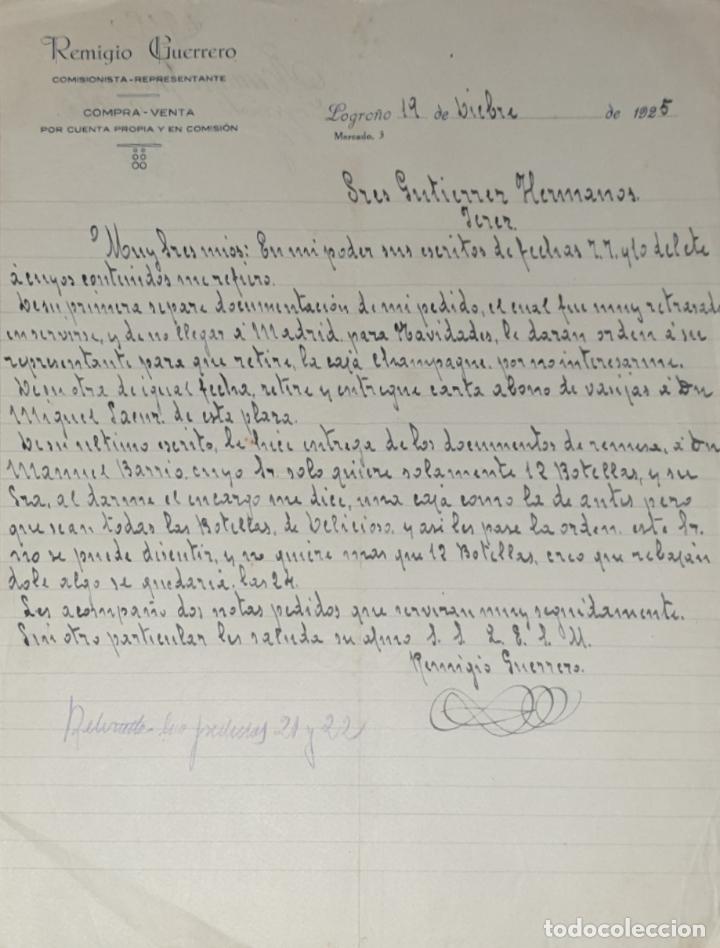 Remigio Guerrero
COMISIONISTA-REPRESENTANTE
COMPRA-VENTA
POR CUENTA PROPIA Y EN COMISIÓN
Logroño 19 de Dicbre de 1925
Mercado, 3
Sres Gutierrez Hermanos.
Jerez.
Muy Sres mios: En mi poder sus escritos de fechas 7. 7. y 10 del cte
á cuyos contenidos me refiero.
De su primera separe documentación de mi pedido, el cual fue muy retrasado
en servirse, y de no llegar á Madrid para Navidades, le darán orden á su
representante para que retire, la cajá Champagne. por no interesarme.
De su otra de igual fecha, retire y entregue carta abono de vasijas á Dn
Miguel Saenz. de esta plaza.
De su ultimo escrito, le hice entrega de los documentos de remesa, á Dn
Manuel Barrio. cuyo Sr. solo quiere solamente 12 Botellas, y su
Sra, al darme el encargo me dice, una cajá como la de antes pero
que sean todas las Botellas, de Delicioso, y asi les pase la orden. este Sr.
no se puede discutir, y no quiere mas que 12 Botellas, creo que rebaján
dole algo se quedaria. las 24.
Les acompaño dos notas pedidos que serviran muy seguidamente.
Sin otro particular les saluda su afmo S. S. Q. E. S. M.
Remigio Guerrero.
los pedidos 21 y 22
todocoleccion